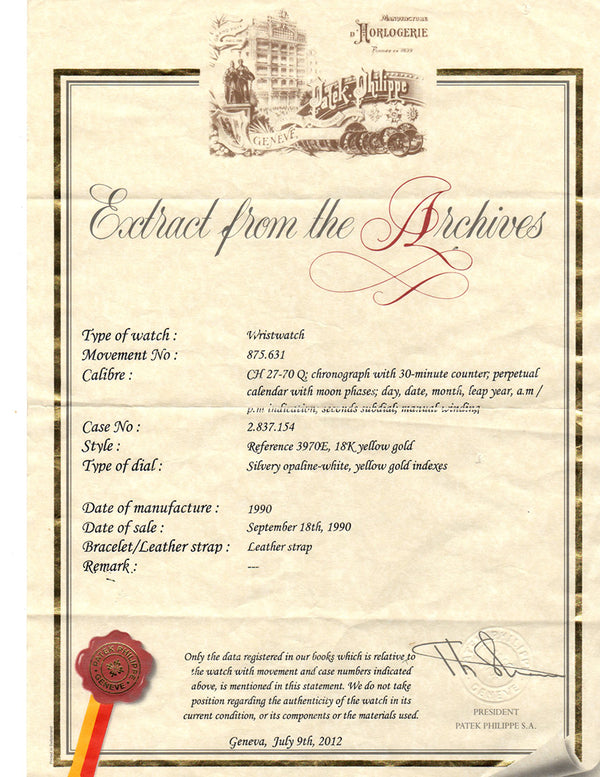 MANUFACTURE
D'HORLOGERIE
FONDÉE EN 1839
Patek Philippe
GENÈVE
Extract from the Archives
Type of watch : Wristwatch
Movement No : 875.631
Calibre : CH 27-70 Q; chronograph with 30-minute counter; perpetual
calendar with moon phases; day, date, month, leap year, a.m /
p.m indication, seconds subdial; manual winding
Case No : 2.837.154
Style : Reference 3970E, 18K yellow gold
Type of dial : Silvery opaline-white, yellow gold indexes
Date of manufacture : 1990
Date of sale : September 18th, 1990
Bracelet/Leather strap : Leather strap
Remark : ---
Only the data registered in our books which is relative to
the watch with movement and case numbers indicated
above, is mentioned in this statement. We do not take
position regarding the authenticity of the watch in its
current condition, or its components or the materials used.
Geneva, July 9th, 2012
PATEK PHILIPPE
GENEVE
PATEK PHILIPPE
GENEVE
PRESIDENT
PATEK PHILIPPE S.A.